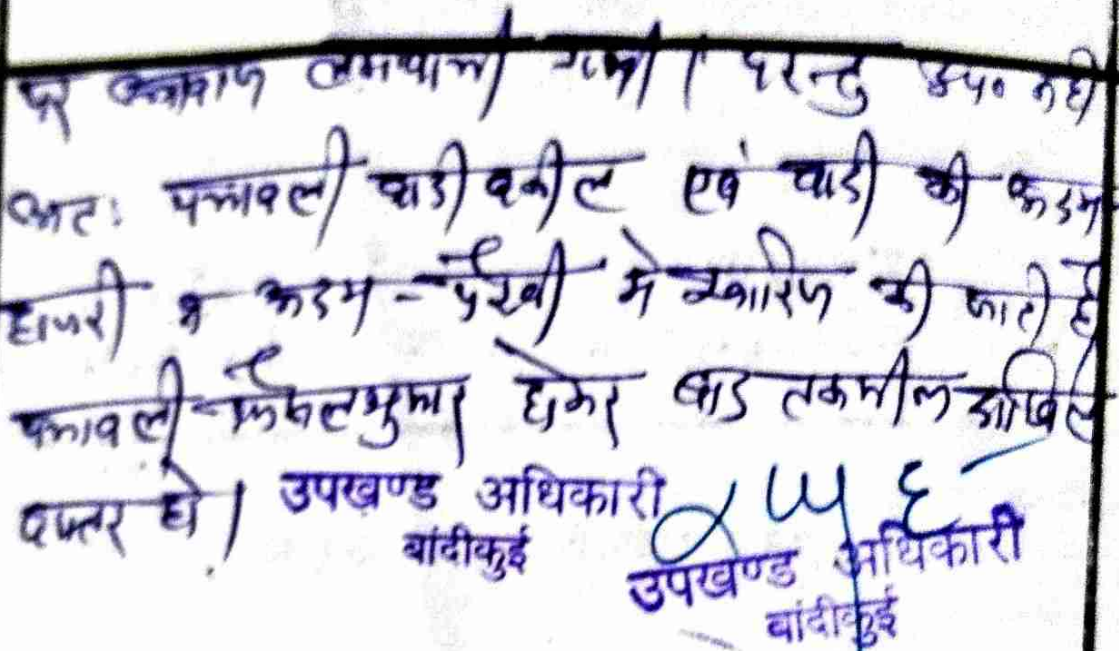 पर आवाज लगवायी गयी। परन्तु उप० नही
अतः पत्रावली वादी वकील एवं वादी की अदम
हाजरी व अदम-पैरवी मे खारिज की जाती है
पत्रावली फैसलशुमार होकर बाद तकमील दाखिल
दफ्तर हो।
उपखण्ड अधिकारी
बांदीकुई
उपखण्ड अधिकारी
बांदीकुई